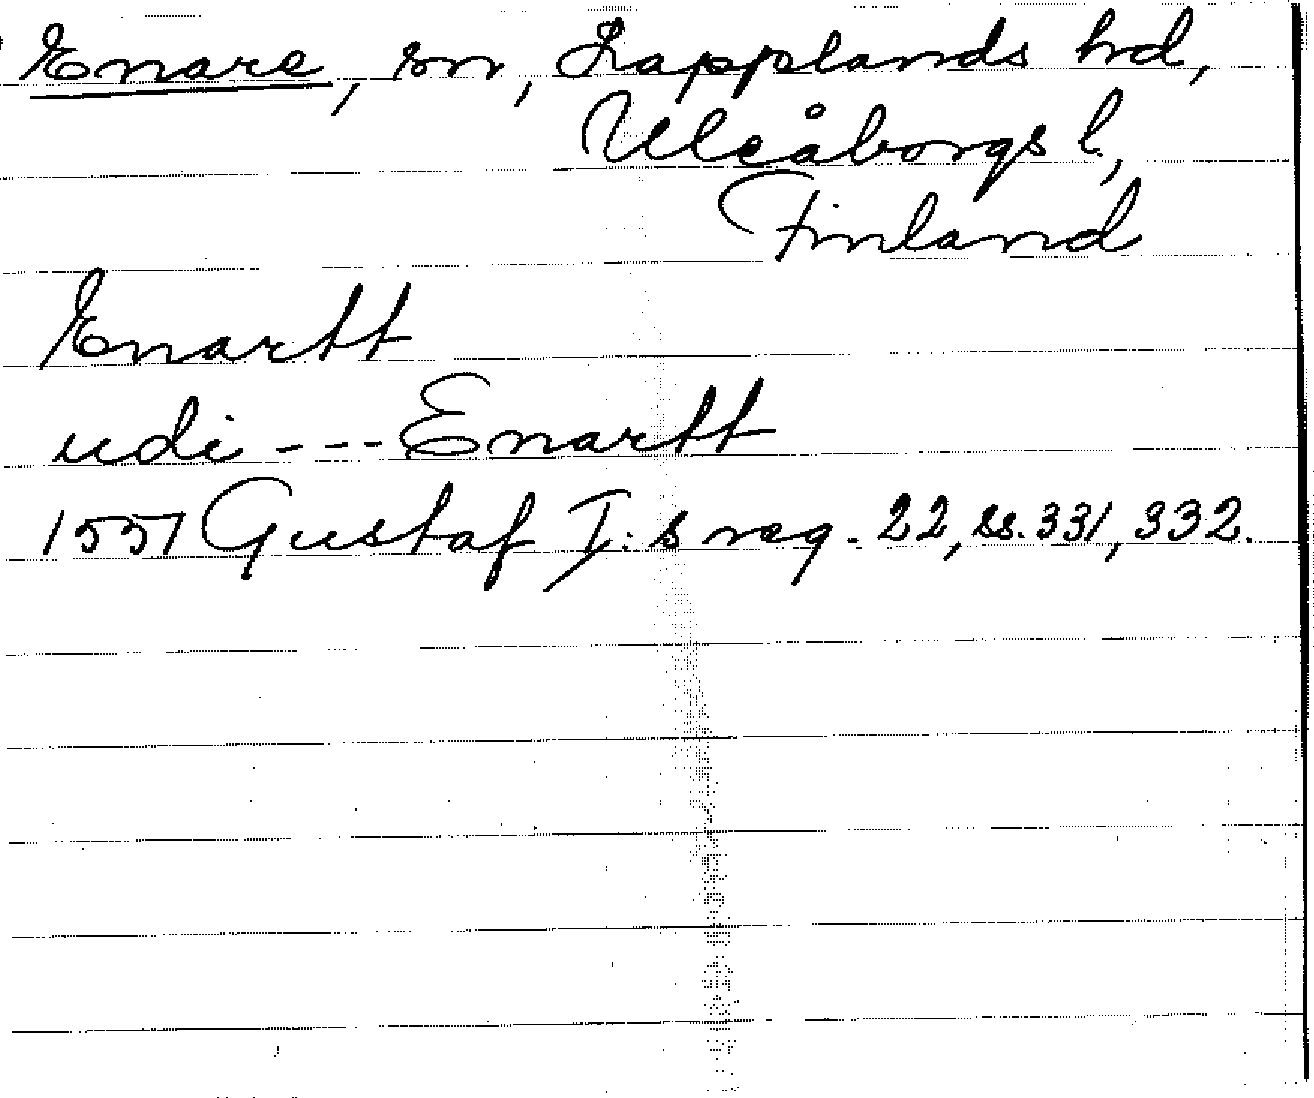 Enare, sn, Lapplands hd,
Uleåborgs l,
Finland
Enartt
udi --- Enartt
1551 Gustaf I:s reg. 22, ss. 331, 332.